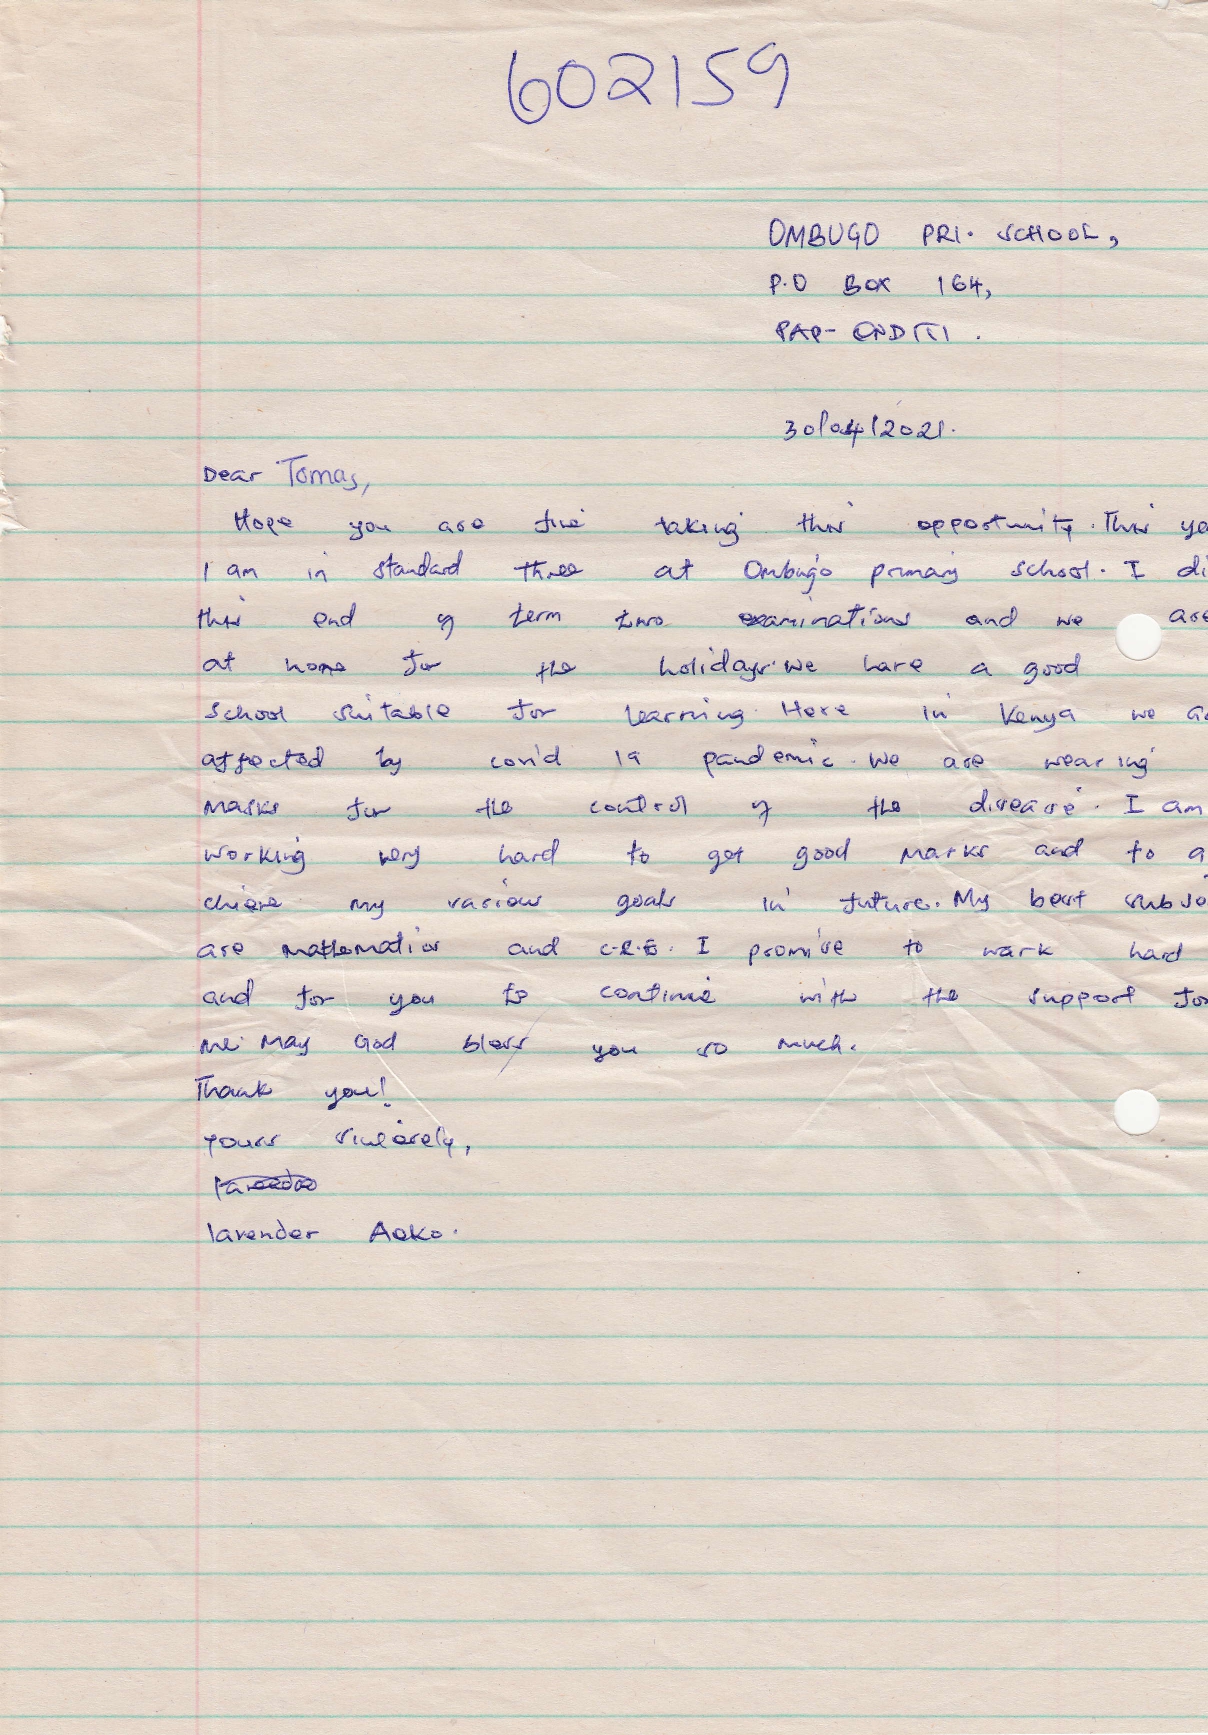 602159
OMBUGO PRI. SCHOOL,
P.O BOX 164,
PAP-ONDITI.
30/04/2021.
Dear Tomas,
Hope you are fine taking this opportunity. This ye
I am in standard three at Ombugo primary school. I di
this end of term two examinations and we are
at home for the holidays. We have a good
school suitable for learning. Here in Kenya we a
affected by covid 19 pandemic. We are wearing
masks for the control of the disease. I am
working very hard to get good marks and to a
chieve my various goals in future. My best subje
are mathematics and C.R.E. I promise to work hard
and for you to continue with the support for
me. May God bless you so much.
Thank you!
yours sincerely,
lavender Aoko.